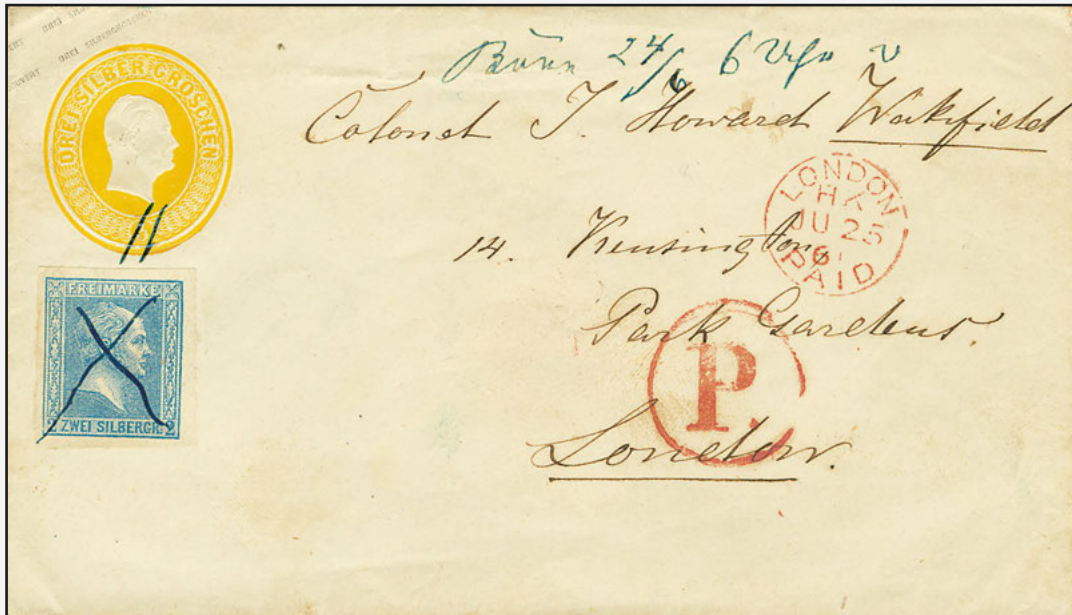 DREI SILBERGROSCHEN
DREI SILBER GROSCHEN
Bonn 24/6 6 Uhr
Colonel J. Howard Wakefield
LONDON
HX
JU 25
61
PAID
14. Kensington
Park Gardens.
P.
London.
FREIMARKE
2 ZWEI SILBERGR. 2